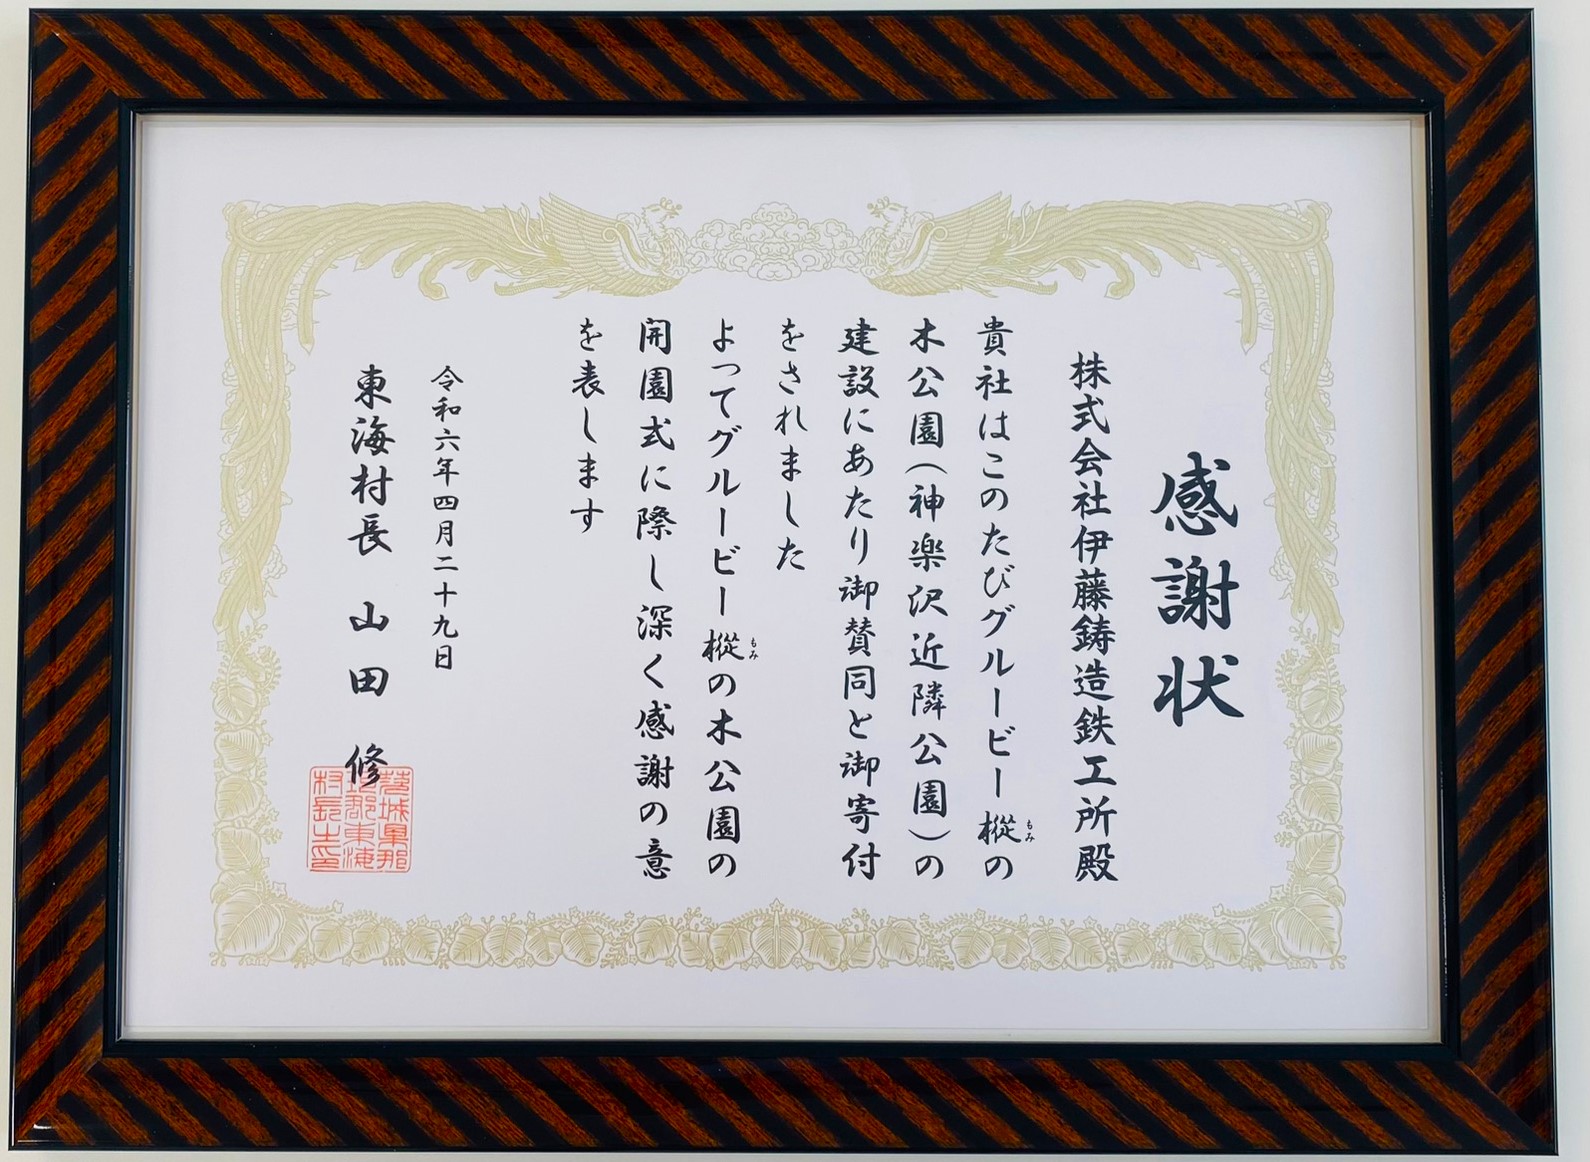 感謝状
株式会社伊藤鋳造鉄工所殿
貴社はこのたびグルービー樅の
もみ
木公園(神楽沢近隣公園)の
建設にあたり御賛同と御寄付
をされました
よってグルービー樅の木公園の
もみ
開園式に際し深く感謝の意
を表します
令和六年四月二十九日
東海村長 山田 修
茨城県那
珂郡東海
村長之印